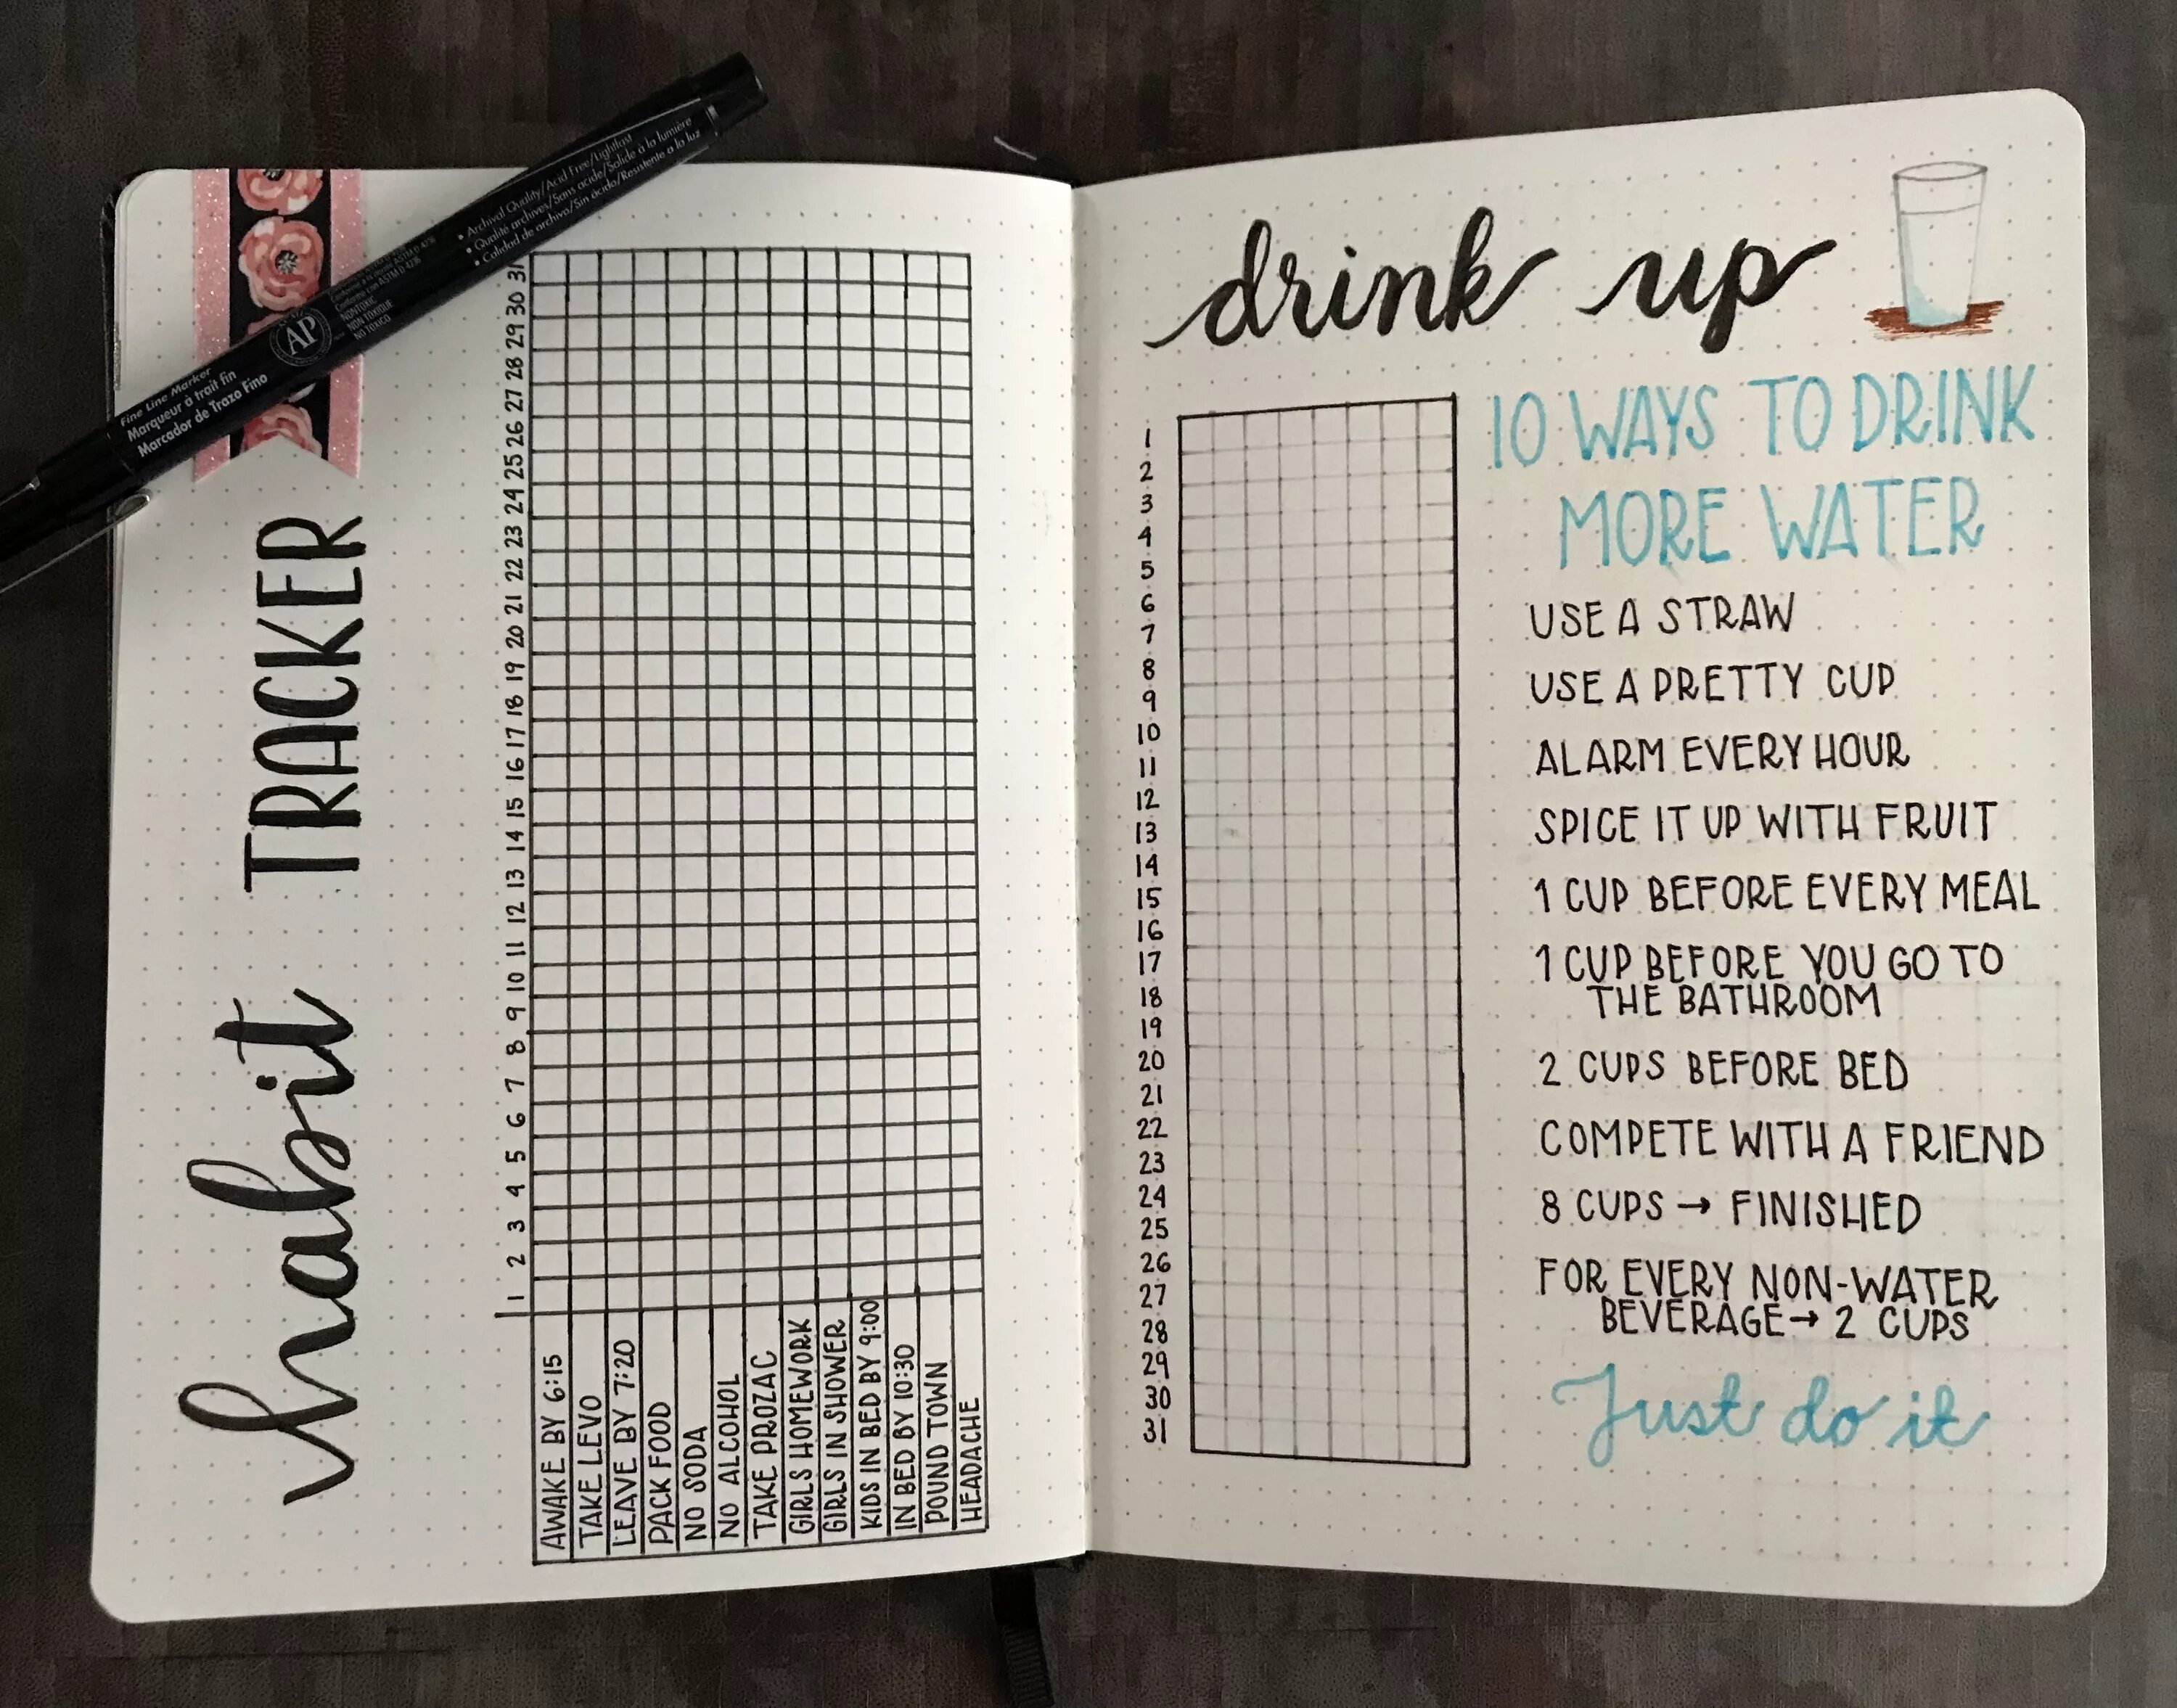 habit TRACKER
1 2 3 4 5 6 7 8 9 10 11 12 13 14 15 16 17 18 19 20 21 22 23 24 25 26 27 28 29 30 31
AWAKE BY 6:15
TAKE LEVO
LEAVE BY 7:20
PACK FOOD
NO SODA
NO ALCOHOL
TAKE PROZAC
GIRLS HOMEWORK
GIRLS IN SHOWER
KIDS IN BED BY 9:00
IN BED BY 10:30
POUND TOWN
HEADACHE
Fine Line Marker
Marqueur à trait fin
Marcador de Trazo Fino
AP
Conforms to ASTM D 4236
NONTOXIC
NON TOXIQUE
NO TOXICO
• Archival Quality/Acid Free/Lightfast
• Qualité archives/Sans acide/Solide à la lumière
• Calidad de archivo/Sin ácido/Resistente a la luz
drink up
1
2
3
4
5
6
7
8
9
10
11
12
13
14
15
16
17
18
19
20
21
22
23
24
25
26
27
28
29
30
31
10 WAYS TO DRINK
MORE WATER
USE A STRAW
USE A PRETTY CUP
ALARM EVERY HOUR
SPICE IT UP WITH FRUIT
1 CUP BEFORE EVERY MEAL
1 CUP BEFORE YOU GO TO
THE BATHROOM
2 CUPS BEFORE BED
COMPETE WITH A FRIEND
8 CUPS → FINISHED
FOR EVERY NON-WATER
BEVERAGE → 2 CUPS
Just do it